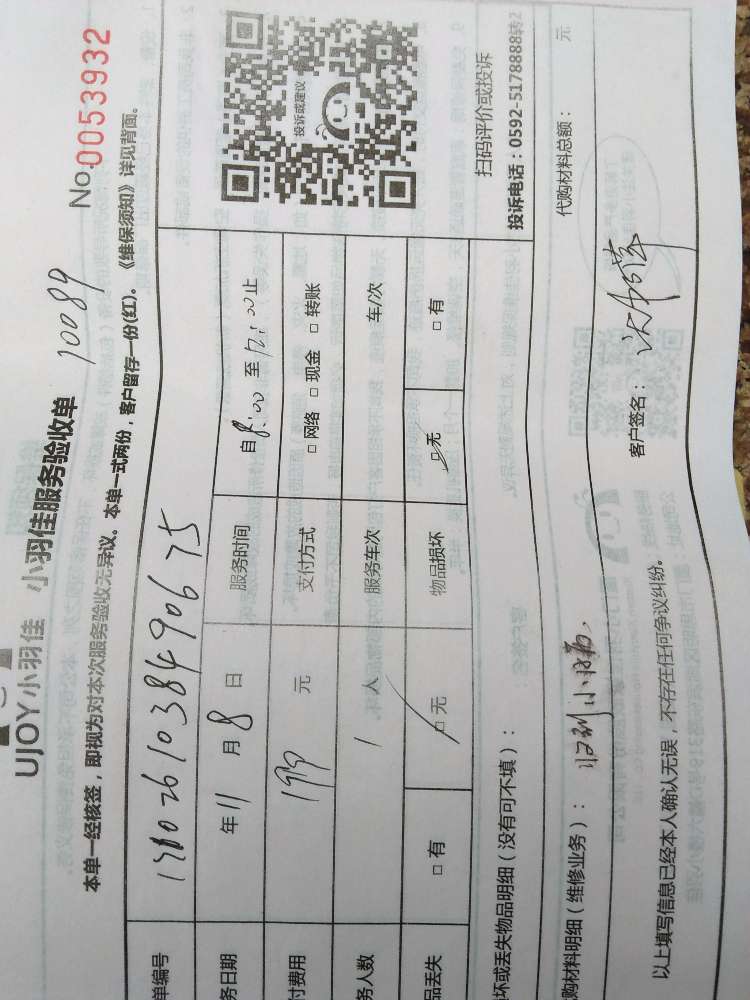 UJOY小羽佳 小羽佳服务验收单 10089 No.0053932
本单一经核签，即视为对本次服务验收无异议。本单一式两份，客户留存一份(红)。《维保须知》详见背面。
单编号 1980261038490675
务日期 年11月8日 服务时间 自8:00至12:00止
付费用 199元 支付方式 □网络 □现金 □转账
务人数 1人 服务车次 车/次
品丢失 □有 □无 物品损坏 □无 □有
投诉或建议
扫码评价或投诉
投诉电话：0592-5178888转2
坏或丢失物品明细（没有可不填）：
购材料明细（维修业务）： 代购材料总额： 元
以上填写信息已经本人确认无误，不存在任何争议纠纷。 客户签名：